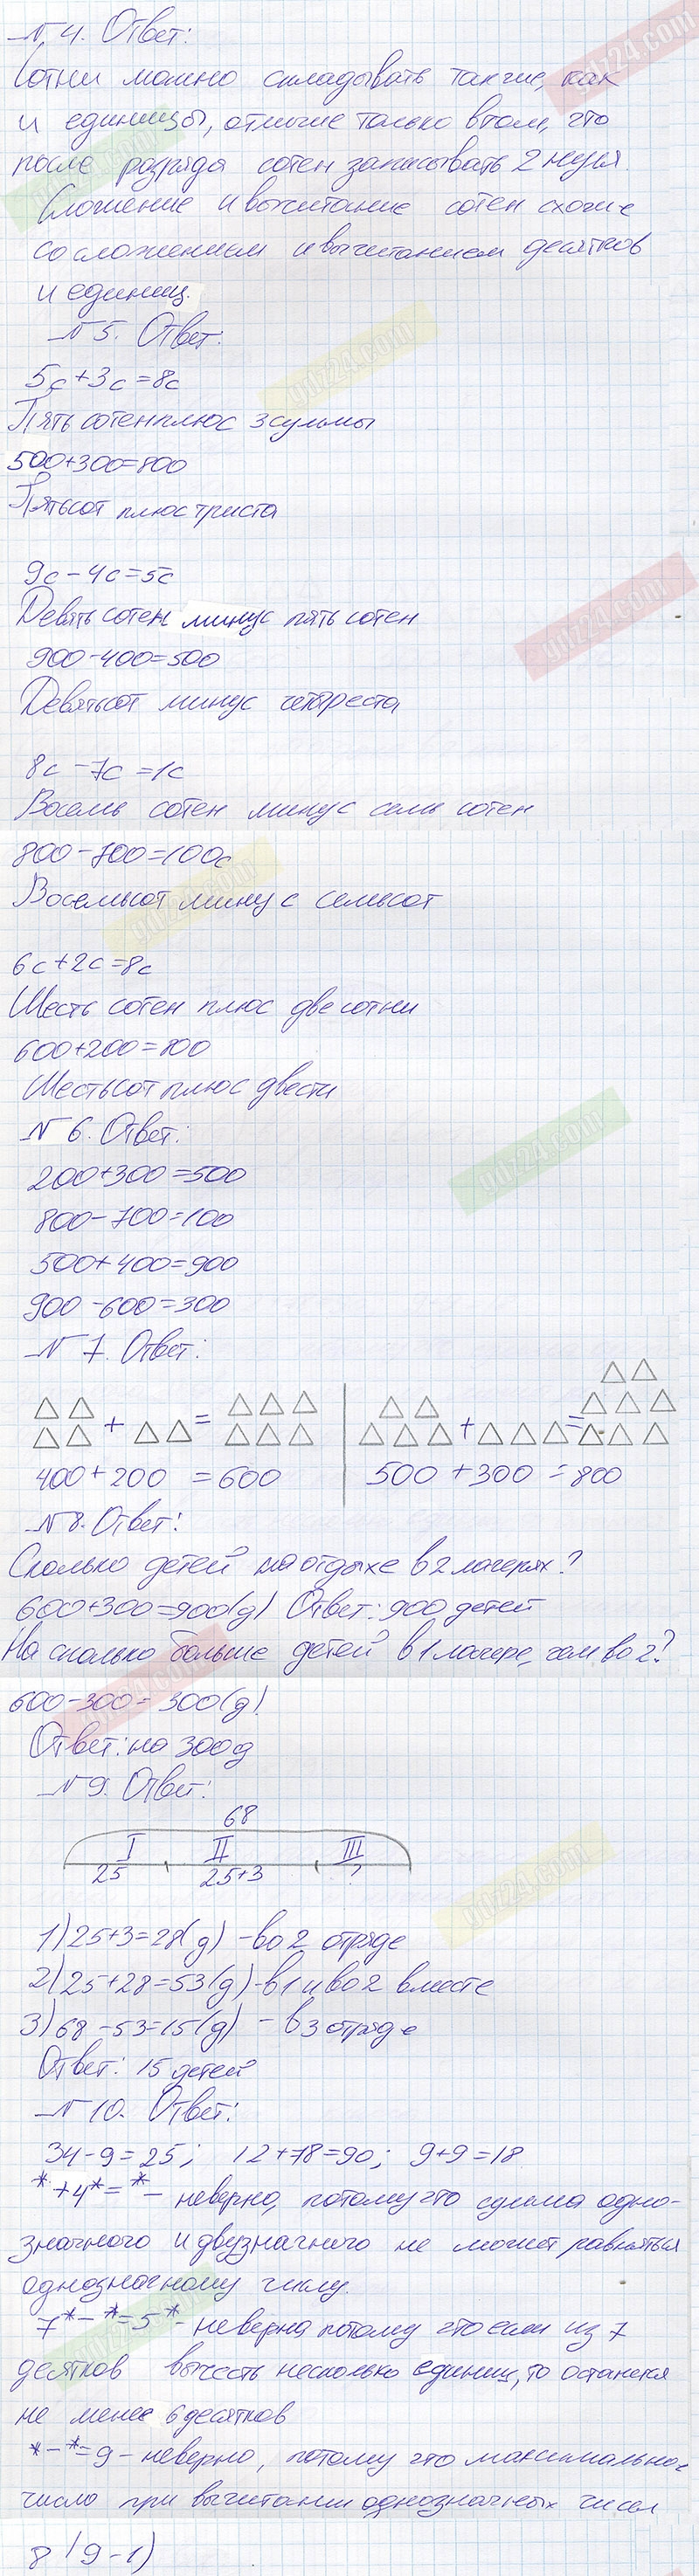 № 4. Ответ:
Сотни можно складывать также, как
и единицы, отличие только в том, что
после разряда сотен записывать 2 нуля.
Сложение и вычитание сотен схожие
со сложением и вычитанием десятков
и единиц.
№ 5. Ответ:
5с+3с=8с
Пять сотен плюс 3 суммы
500+300=800
Пятьсот плюс триста
9с-4с=5с
Девять сотен минус пять сотен
900-400=500
Девятьсот минус четыреста
8с-7с=1с
Восемь сотен минус семь сотен
800-700=100с
Восемьсот минус семьсот
6с+2с=8с
Шесть сотен плюс две сотни
600+200=800
Шестьсот плюс двести
№ 6. Ответ:
200+300=500
800-700=100
500+400=900
900-600=300
№ 7. Ответ:
+ = + =
400+200=600 500+300=800
№ 8. Ответ:
Сколько детей на отдыхе в 2 лагерях?
600+300=900(д) Ответ: 900 детей
На сколько больше детей в 1 лагере, чем во 2?
600-300=300(д)
Ответ: на 300 д
№ 9. Ответ:
68
I II III
25 25+3 ?
1) 25+3=28(д) - во 2 отряде
2) 25+28=53(д) - в 1 и во 2 вместе
3) 68-53=15(д) - в 3 отряде
Ответ: 15 детей
№ 10. Ответ:
34-9=25; 12+78=90; 9+9=18
*+4*=* - неверно, потому что сумма одно-
значного и двузначного не может равняться
однозначному числу.
7*-*=5* - неверно потому что если из 7
десятков вычесть несколько единиц, то останется
не менее 6 десятков
*-*=9 - неверно, потому что максимальное
число при вычитании однозначных чисел
8 (9-1)
gdz24.com
gdz24.com
gdz24.com
gdz24.com
gdz24.com
gdz24.com
gdz24.com
gdz24.com
gdz24.com